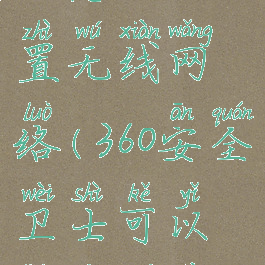 zhì wú xiàn wǎng
置无线网
luò ān quán
络(360安全
wèi shì kě yǐ
卫士可以